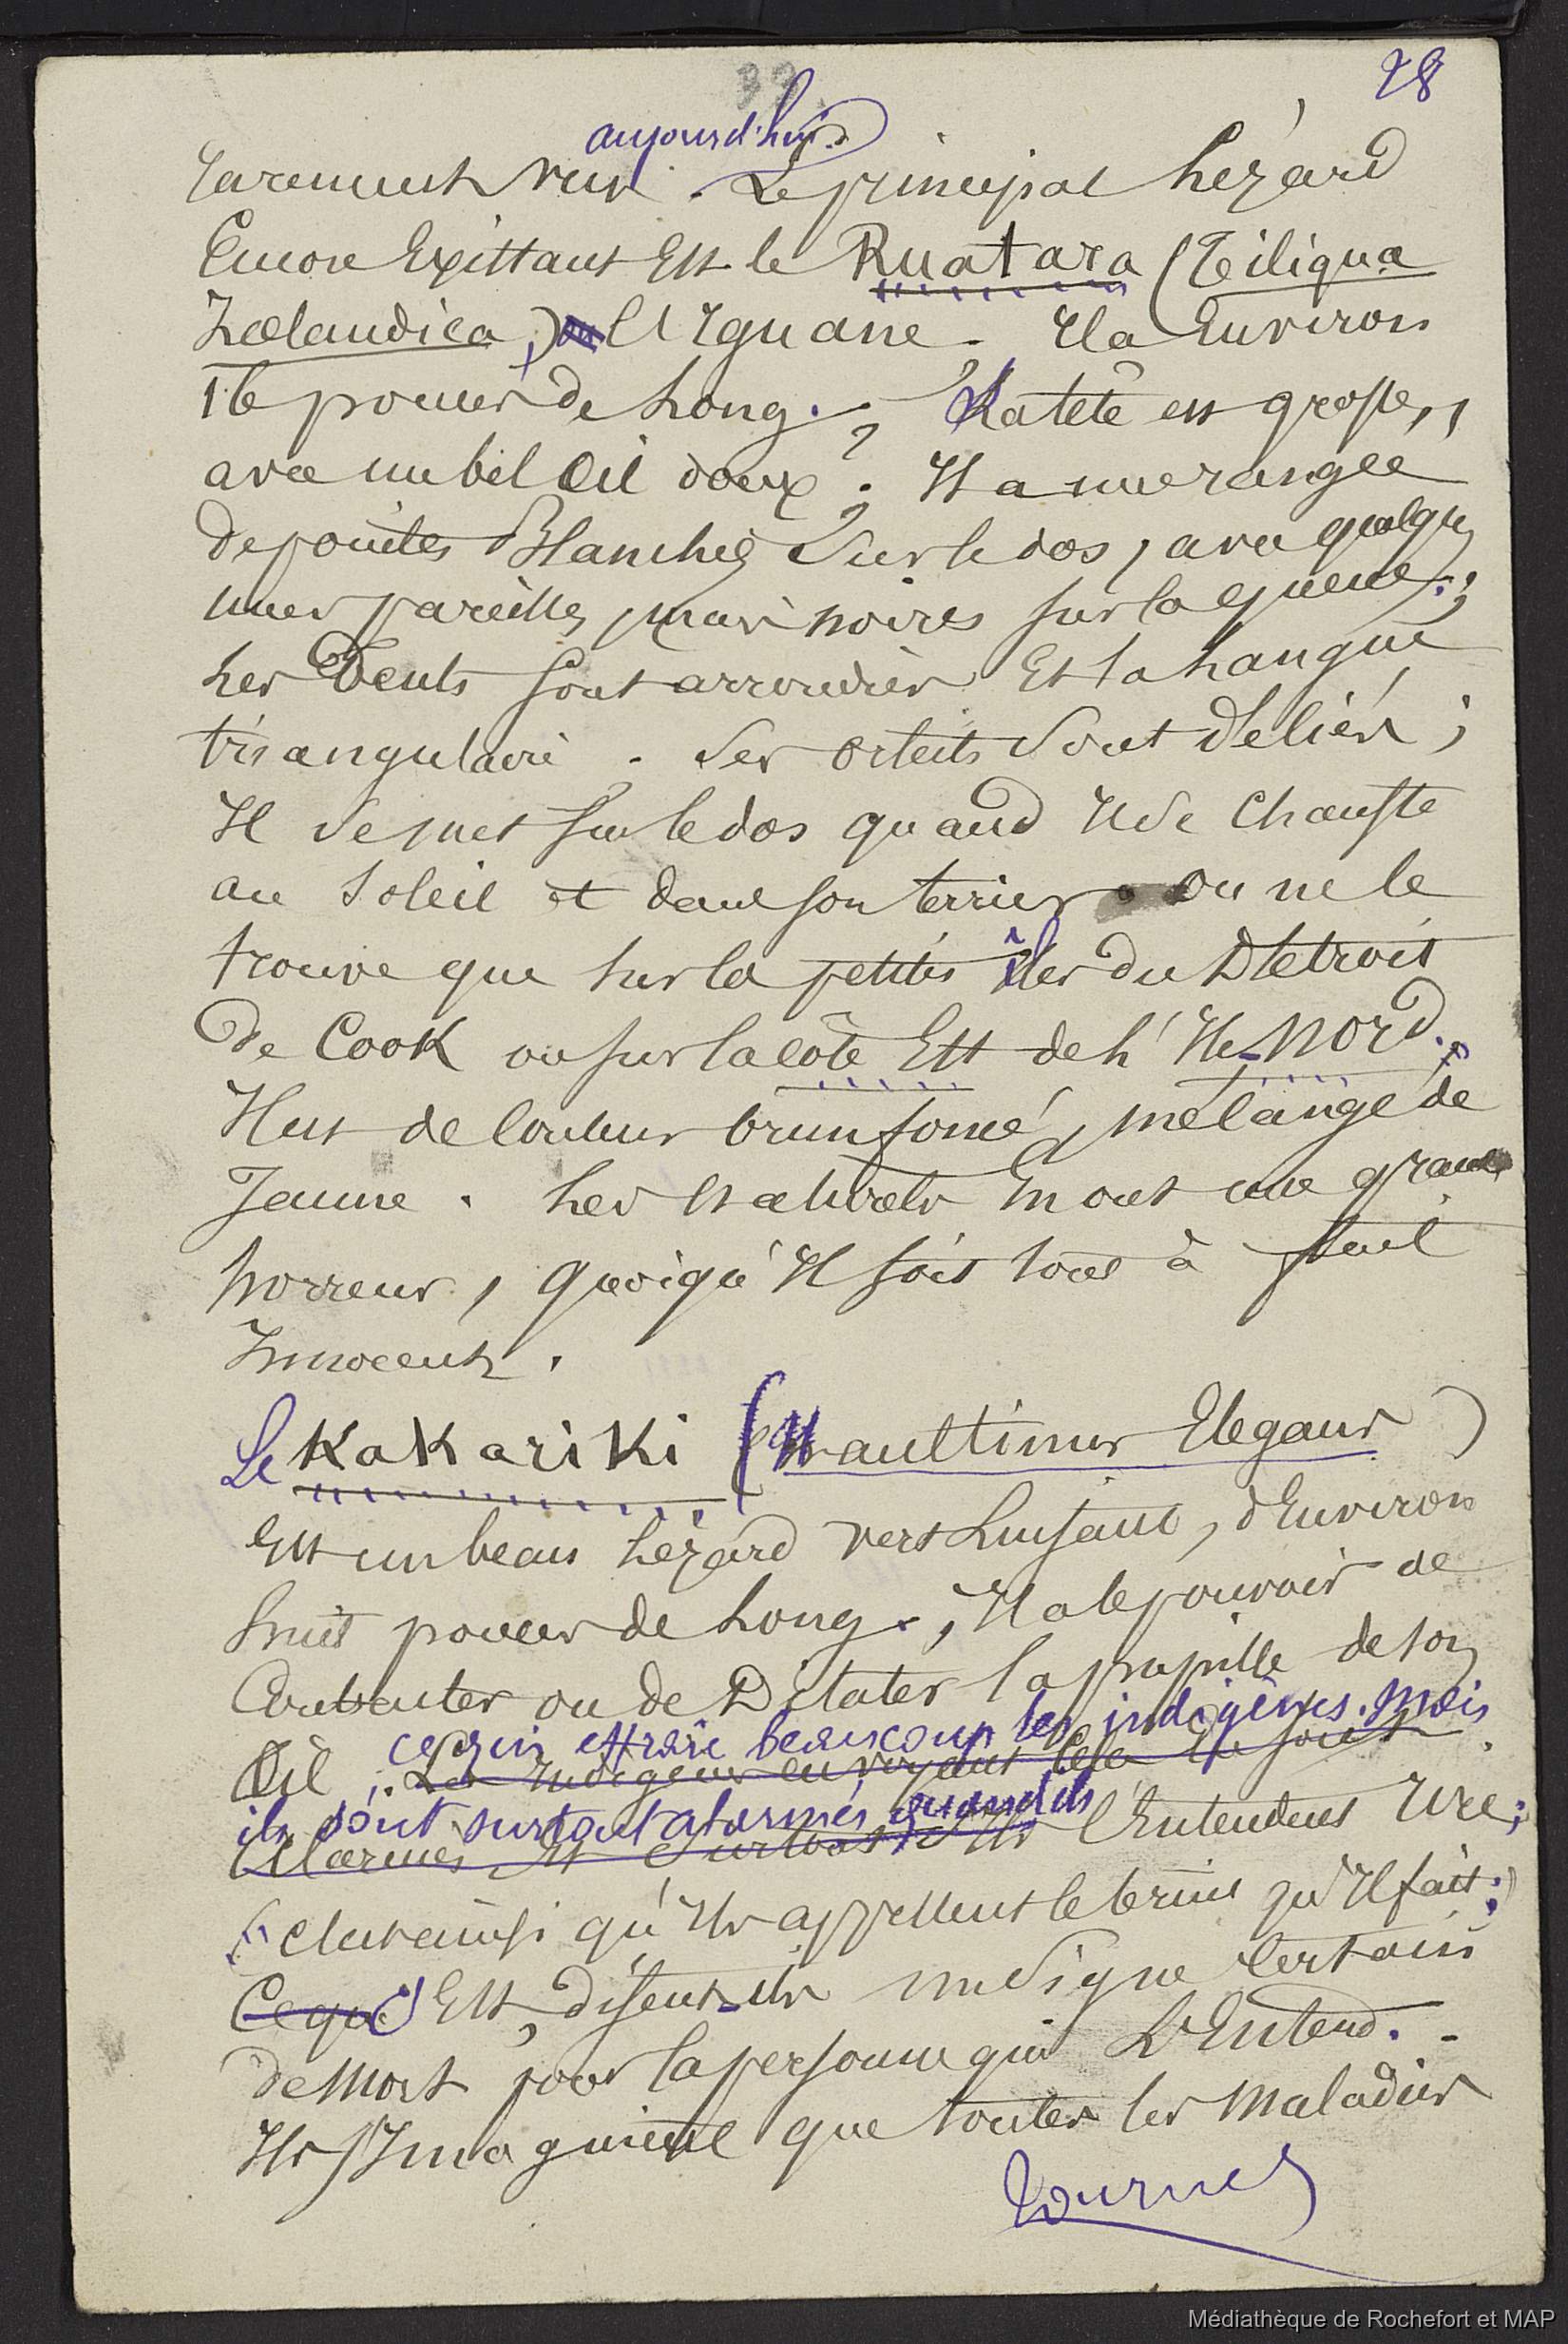 28
39
aujourd'hui
rarement vus. Le principal Lézard
Encore Existtant Est le Ruatara (Tiliqua
Zœlandica), l'Iguane. Il a Environ
16 pouces de Long.; La tête est grosse,
avec un bel Œil doux; Il a une rangée
de pointes Blanches Sur le dos, avec quelques
unes pareilles, mais noires sur la queue;
Les Dents sont arrondies Et la Langue
triangulaire. Ses orteils Sont déliés;
Il Se met sur le dos quand Il Se Chauffe
au Soleil et dans son terrier. On ne le
trouve que sur les petites îles du Détroit
de Cook ou sur la côte Est de L'Ile-Nord.
Il est de Couleur brun foncé, mélangé de
Jaune. Les Naturels En ont une grande
horreur, quoiqu'Il soit tout à fait
Innocent.
Le KaKariKi (Naultinus Elegans)
Est un beau Lézard vert Luisant, d'Environ
huit pouces de Long.; Il a le pouvoir de
Contracter ou de Dilater la pupille de son
ce qui effraie beaucoup les indigènes. Mais
Œil; Les Indigènes en voyant Cela En sont
ils sont surtout alarmés quand ils
Alarmés Et Surtout S'Ils L'Entendent rire;
(C'est ainsi qu'Ils appellent le bruit qu'Il fait;)
Ce qui C'Est, disent-ils un Signe Certain
de Mort pour la personne qui L'Entend.
Ils S'Imaginent que toutes les Maladies
Tournez
Médiathèque de Rochefort et MAP